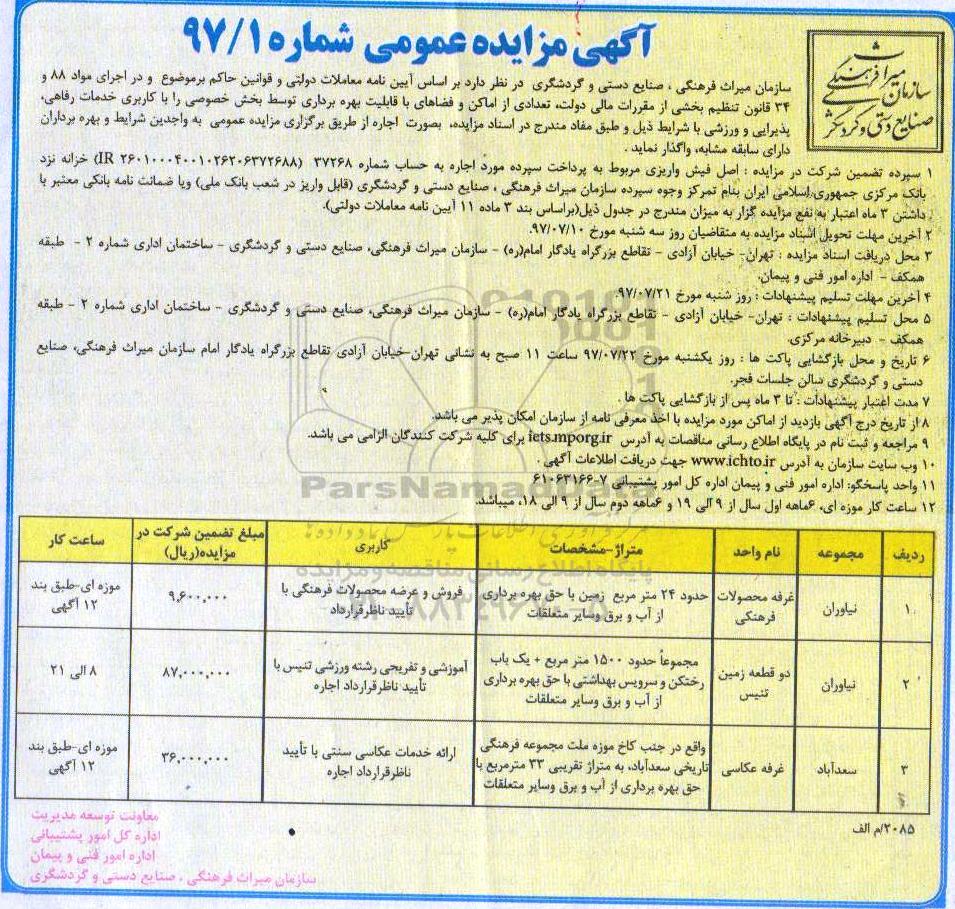 آگهی مزایده عمومی شماره ۹۷/۱
سازمان میراث فرهنگی
صنایع دستی و گردشگری
سازمان میراث فرهنگی ، صنایع دستی و گردشگری در نظر دارد بر اساس آیین نامه معاملات دولتی و قوانین حاکم برموضوع و در اجرای مواد ۸۸ و
۳۴ قانون تنظیم بخشی از مقررات مالی دولت، تعدادی از اماکن و فضاهای با قابلیت بهره برداری توسط بخش خصوصی را با کاربری خدمات رفاهی،
پذیرایی و ورزشی با شرایط ذیل و طبق مفاد مندرج در اسناد مزایده، بصورت اجاره از طریق برگزاری مزایده عمومی به واجدین شرایط و بهره برداران
دارای سابقه مشابه، واگذار نماید .
۱ سپرده تضمین شرکت در مزایده : اصل فیش واریزی مربوط به پرداخت سپرده مورد اجاره به حساب شماره ۳۷۲۶۸ (IR ۲۶۰۱۰۰۰۴۰۰۱۰۲۶۲۰۶۳۷۲۶۸۸) خزانه نزد
بانک مرکزی جمهوری اسلامی ایران بنام تمرکز وجوه سپرده سازمان میراث فرهنگی ، صنایع دستی و گردشگری (قابل واریز در شعب بانک ملی) ویا ضمانت نامه بانکی معتبر با
داشتن ۳ ماه اعتبار به نفع مزایده گزار به میزان مندرج در جدول ذیل(براساس بند ۳ ماده ۱۱ آیین نامه معاملات دولتی).
۲ آخرین مهلت تحویل اسناد مزایده به متقاضیان روز سه شنبه مورخ ۹۷/۰۷/۱۰.
۳ محل دریافت اسناد مزایده : تهران- خیابان آزادی - تقاطع بزرگراه یادگار امام(ره) - سازمان میراث فرهنگی، صنایع دستی و گردشگری - ساختمان اداری شماره ۲ - طبقه
همکف - اداره امور فنی و پیمان.
۴ آخرین مهلت تسلیم پیشنهادات : روز شنبه مورخ ۹۷/۰۷/۲۱
۵ محل تسلیم پیشنهادات : تهران- خیابان آزادی - تقاطع بزرگراه یادگار امام(ره) - سازمان میراث فرهنگی، صنایع دستی و گردشگری - ساختمان اداری شماره ۲ - طبقه
همکف - دبیرخانه مرکزی.
۶ تاریخ و محل بازگشایی پاکت ها : روز یکشنبه مورخ ۹۷/۰۷/۲۲ ساعت ۱۱ صبح به نشانی تهران-خیابان آزادی تقاطع بزرگراه یادگار امام سازمان میراث فرهنگی، صنایع
دستی و گردشگری سالن جلسات فجر.
۷ مدت اعتبار پیشنهادات : تا ۳ ماه پس از بازگشایی پاکت ها .
۸ از تاریخ درج آگهی بازدید از اماکن مورد مزایده با اخذ معرفی نامه از سازمان امکان پذیر می باشد.
۹ مراجعه و ثبت نام در پایگاه اطلاع رسانی مناقصات به آدرس iets.mporg.ir برای کلیه شرکت کنندگان الزامی می باشد.
۱۰ وب سایت سازمان به آدرس www.ichto.ir جهت دریافت اطلاعات آگهی .
۱۱ واحد پاسخگو: اداره امور فنی و پیمان اداره کل امور پشتیبانی ۷-۶۱۰۶۳۱۶۶
۱۲ ساعت کار موزه ای، ۶ماهه اول سال از ۹ الی ۱۹ و ۶ماهه دوم سال از ۹ الی ۱۸، میباشد.
ParsNamadData
پایگاه اطلاع رسانی مناقصه و مزایده
ردیف مجموعه نام واحد متراژ-مشخصات کاربری مبلغ تضمین شرکت در مزایده(ریال) ساعت کار
۱ نیاوران غرفه محصولات فرهنگی حدود ۲۴ متر مربع زمین با حق بهره برداری از آب و برق وسایر متعلقات فروش و عرضه محصولات فرهنگی با تأیید ناظرقرارداد ۹,۶۰۰,۰۰۰ موزه ای-طبق بند ۱۲ آگهی
۲ نیاوران دو قطعه زمین تنیس مجموعاً حدود ۱۵۰۰ متر مربع + یک باب رختکن و سرویس بهداشتی با حق بهره برداری از آب و برق وسایر متعلقات آموزشی و تفریحی رشته ورزشی تنیس با تأیید ناظرقرارداد اجاره ۸۷,۰۰۰,۰۰۰ ۸ الی ۲۱
۳ سعدآباد غرفه عکاسی واقع در جنب کاخ موزه ملت مجموعه فرهنگی تاریخی سعدآباد، به متراژ تقریبی ۳۳ مترمربع با حق بهره برداری از آب و برق وسایر متعلقات ارائه خدمات عکاسی سنتی با تأیید ناظرقرارداد اجاره ۳۶,۰۰۰,۰۰۰ موزه ای-طبق بند ۱۲ آگهی
۲۰۸۵/م الف
معاونت توسعه مدیریت
اداره کل امور پشتیبانی
اداره امور فنی و پیمان
سازمان میراث فرهنگی ، صنایع دستی و گردشگری